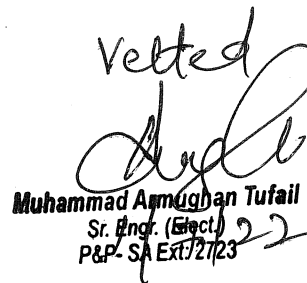 Vetted
Muhammad Armughan Tufail
Sr. Engr. (Elect.)
P&P- SA Ext: 2723